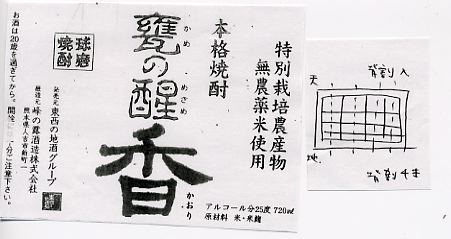 特別栽培農産物
無農薬米使用
本格焼酎
甕の醒香
かめ
めざめ
かおり
アルコール分25度 720ml
原材料 米・米麹
球磨
焼酎
発売元 東西の地酒グループ
醸造元 峰の露酒造株式会社
熊本県人吉市新町一
お酒は20歳を過ぎてから。開栓に 十分ご注意下さい。
背割 入
天
地